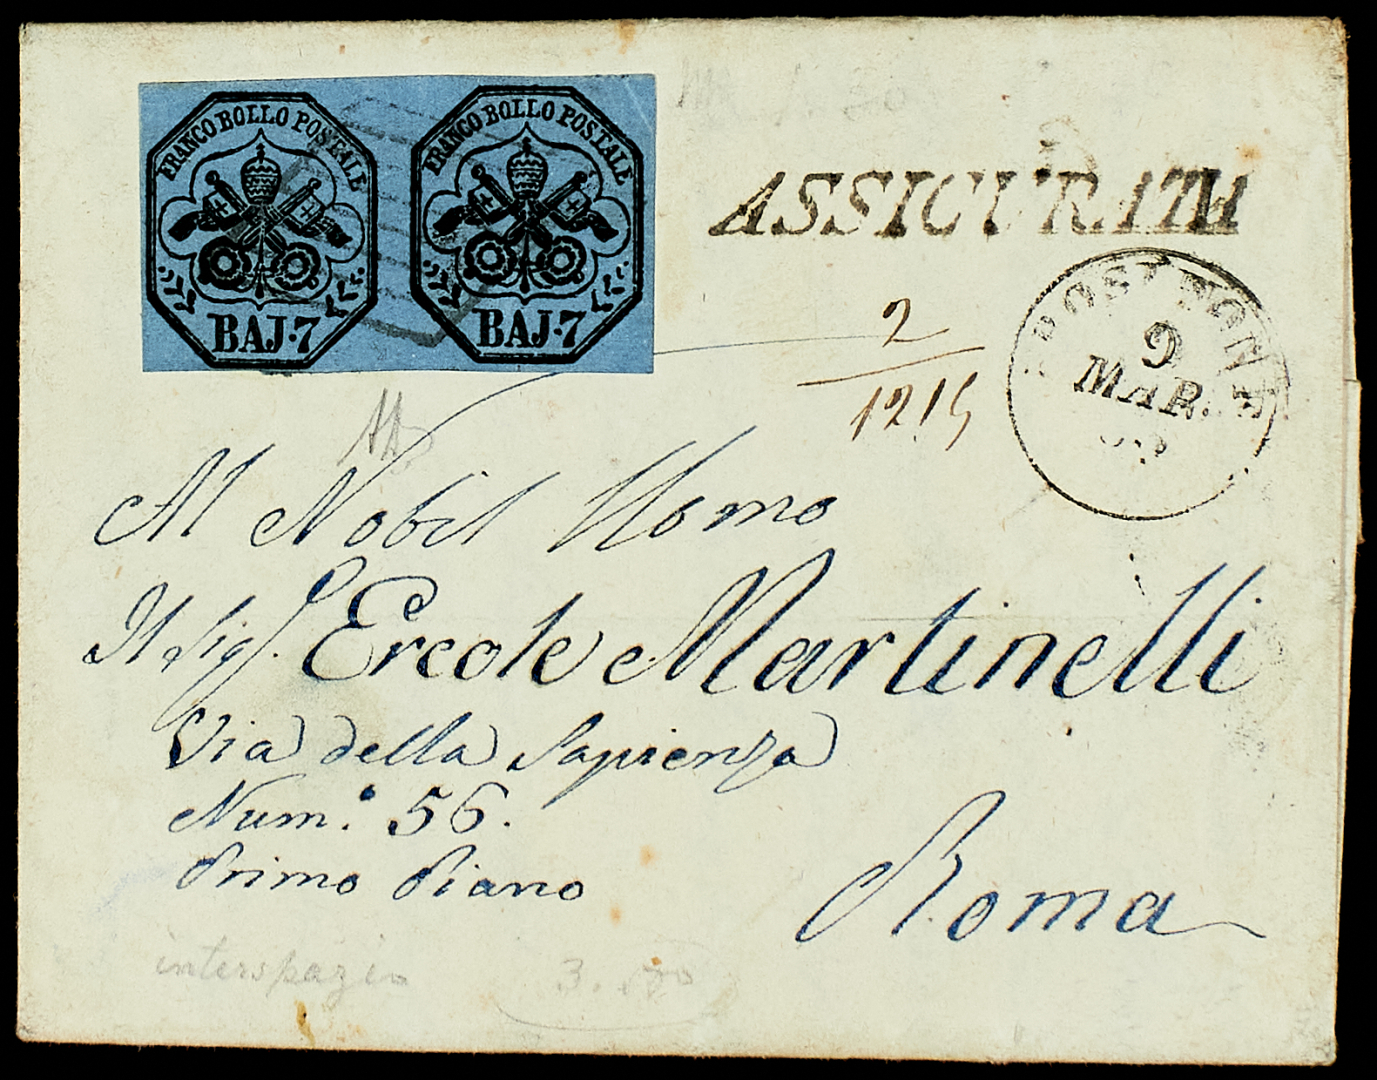 FRANCO BOLLO POSTALE
BAJ·7
FRANCO BOLLO POSTALE
BAJ·7
ASSICURATA
FROSINONE
9
MAR.
2
1215
Al Nobil Uomo
Il Sigr. Ercole Martinelli
Via della Sapienza
Num.° 56.
Primo Piano
Roma
interspazio